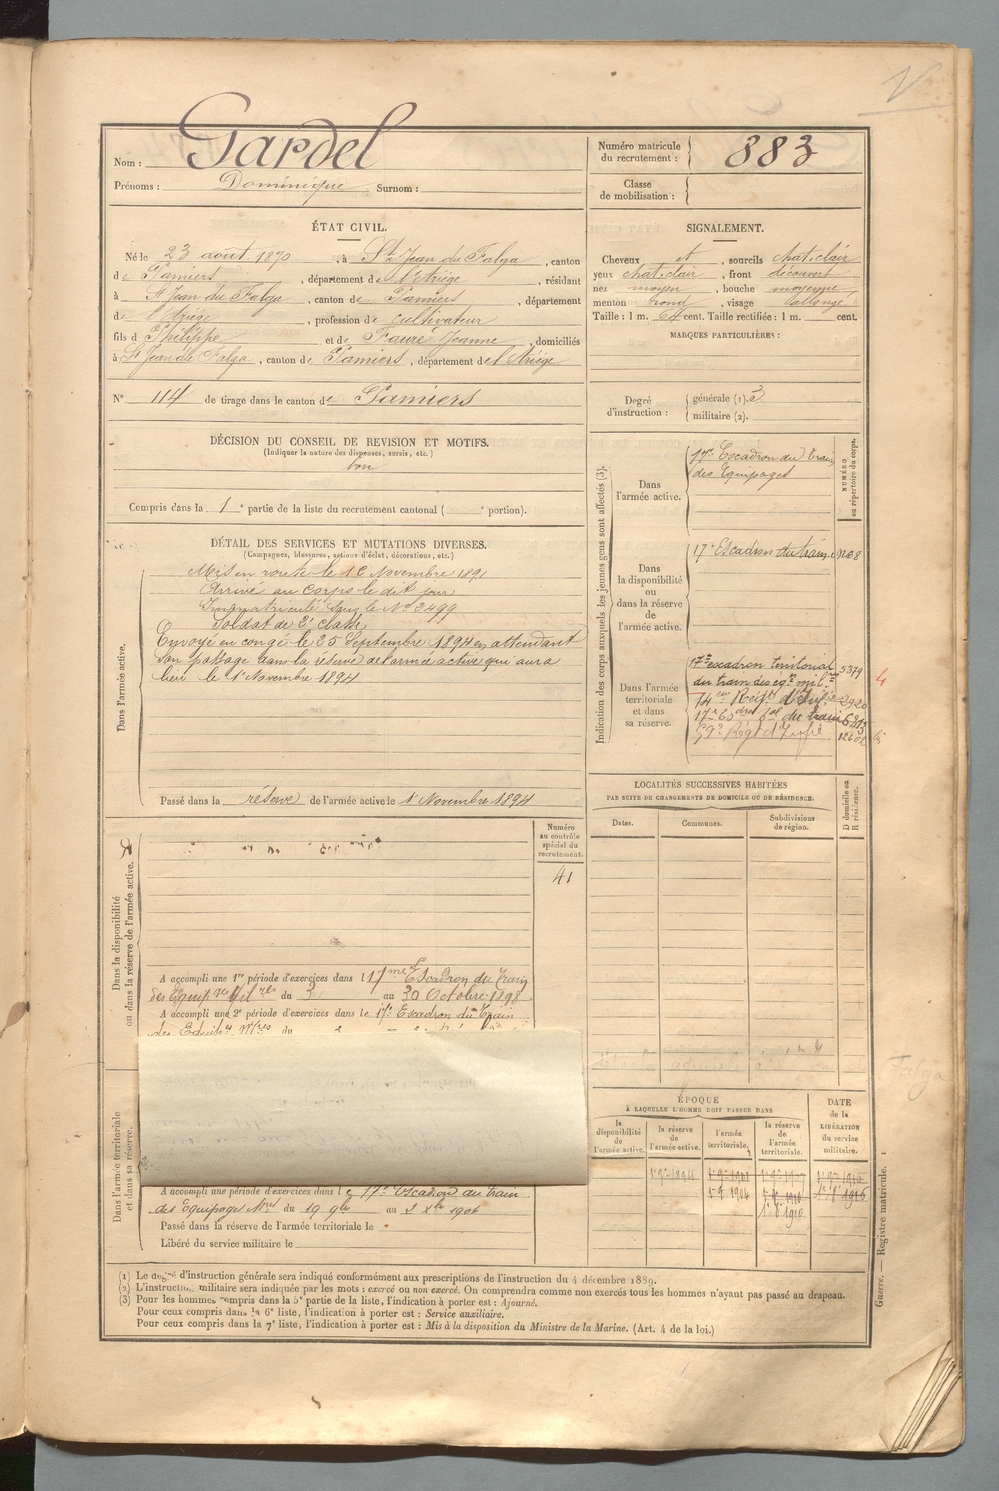 Nom : Gardel
Prénoms : Dominique Surnom :
Numéro matricule
du recrutement : 883
Classe
de mobilisation :
ÉTAT CIVIL.
Né le 23 août 1870, à St Jean du Falga, canton
de Pamiers, département de l'Ariège, résidant
à St Jean du Falga, canton de Pamiers, département
de l'Ariège, profession de cultivateur
fils d Philippe et de Faure Jeanne, domiciliés
à St Jean du Falga, canton de Pamiers, département de l'Ariège
N° 114 de tirage dans le canton de Pamiers
SIGNALEMENT.
Cheveux et, sourcils chat. clair
yeux chat. clair, front découvert
nez moyen, bouche moyenne
menton rond, visage allongé
Taille : 1 m. 64 cent. Taille rectifiée : 1 m. cent.
MARQUES PARTICULIÈRES :
Degré
d'instruction :
générale (1). 3
militaire (2).
DÉCISION DU CONSEIL DE REVISION ET MOTIFS.
(Indiquer la nature des dispenses, sursis, etc.)
bon
Compris dans la 1e partie de la liste du recrutement cantonal ( e portion).
DÉTAIL DES SERVICES ET MUTATIONS DIVERSES.
(Campagnes, blessures, actions d'éclat, décorations, etc.)
Dans l'armée active.
Mis en route le Novembre 1891
Arrivé au corps le dit jour
Immatriculé sous le No 2499
Soldat de 2e classe
Envoyé en congé le 25 Septembre 1894 en attendant
son passage dans la réserve de l'armée active qui aura
lieu le 1r Novembre 1894
Passé dans la réserve de l'armée active le 1r Novembre 1894
Indication des corps auxquels les jeunes gens sont affectés (3).
NUMÉRO
au répertoire du corps.
Dans
l'armée active.
17e Escadron du train
des Equipages
Dans
la disponibilité
ou
dans la réserve
de
l'armée active.
17e Escadron du train
Dans l'armée
territoriale
et dans
sa réserve.
17e escadron territorial
du train des éq. mil. 5379
4
LOCALITÉS SUCCESSIVES HABITÉES
PAR SUITE DE CHANGEMENTS DE DOMICILE OU DE RÉSIDENCE.
D domicile ou
R résidence.
Dates.
Communes.
Subdivisions
de région.
Dans la disponibilité
ou dans la réserve de l'armée active.
Numéro
au contrôle
spécial du
recrutement.
41
A accompli une 1re période d'exercices dans l 17me Escadron du Train
des Equip. Mil. du 3 au 30 Octobre 1898.
A accompli une 2e période d'exercices dans le 17e Escadron du Train
Dans l'armée territoriale
et dans sa réserve.
A accompli une période d'exercices dans le 17e Escadron du train
des Equipages du 19 9bre au 2 Xbre 1906
Passé dans la réserve de l'armée territoriale le
Libéré du service militaire le
ÉPOQUE
À LAQUELLE L'HOMME DOIT PASSER DANS
DATE
de la
LIBÉRATION
du service
militaire.
la
disponibilité
de
l'armée active.
la réserve
de
l'armée active.
l'armée
territoriale.
la réserve
de
l'armée
territoriale.
(1) Le degré d'instruction générale sera indiqué conformément aux prescriptions de l'instruction du 4 décembre 1889.
(2) L'instruction militaire sera indiquée par les mots : exercé ou non exercé. On comprendra comme non exercés tous les hommes n'ayant pas passé au drapeau.
(3) Pour les hommes compris dans la 5e partie de la liste, l'indication à porter est : Ajourné.
Pour ceux compris dans la 6e liste, l'indication à porter est : Service auxiliaire.
Pour ceux compris dans la 7e liste, l'indication à porter est : Mis à la disposition du Ministre de la Marine. (Art. 4 de la loi.)
Guerre. — Registre matricule. 1
Falga